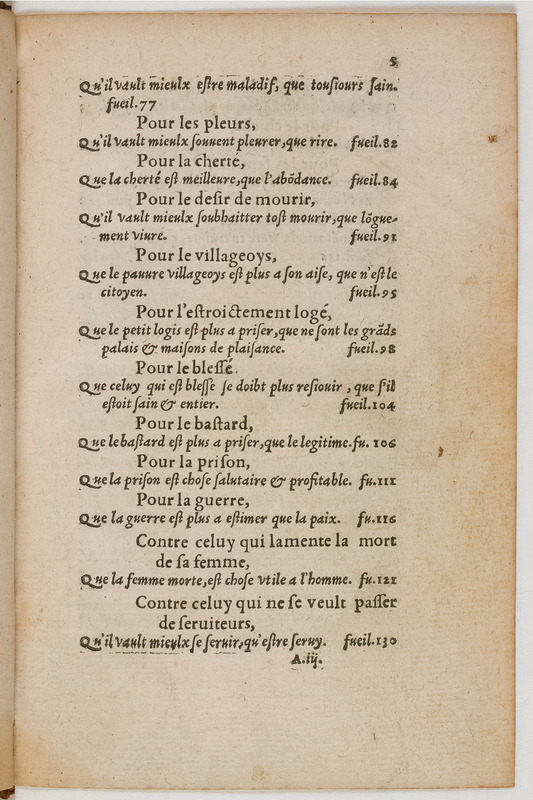 5
Qu'il vault mieulx eſtre maladif, que touſiours ſain.
fueil.77
Pour les pleurs,
Qu'il vault mieulx ſouuent pleurer, que rire. fueil.82
Pour la cherté,
Que la cherté eſt meilleure, que l'abõdance. fueil.84
Pour le deſir de mourir,
Qu'il vault mieulx ſoubhaitter toſt mourir, que lõgue-
ment viure. fueil.91
Pour le villageoys,
Que le pauure villageoys eſt plus a ſon aiſe, que n'eſt le
citoyen. fueil.95
Pour l'eſtroictement logé,
Que le petit logis eſt plus a priſer, que ne ſont les grãds
palais & maiſons de plaiſance. fueil.98
Pour le bleſſé.
Que celuy qui eſt bleſſe ſe doibt plus reſiouir, que s'il
eſtoit ſain & entier. fueil.104
Pour le baſtard,
Que le baſtard eſt plus a priſer, que le legitime. fu. 106
Pour la priſon,
Que la priſon eſt choſe ſalutaire & profitable. fu.111
Pour la guerre,
Que la guerre eſt plus a eſtimer que la paix. fu.116
Contre celuy qui lamente la mort
de ſa femme,
Que la femme morte, eſt choſe vtile a l'homme. fu.121
Contre celuy qui ne ſe veult paſſer
de ſeruiteurs,
Qu'il vault mieulx ſe ſeruir, qu'eſtre ſeruy. fueil.130
A.iij.